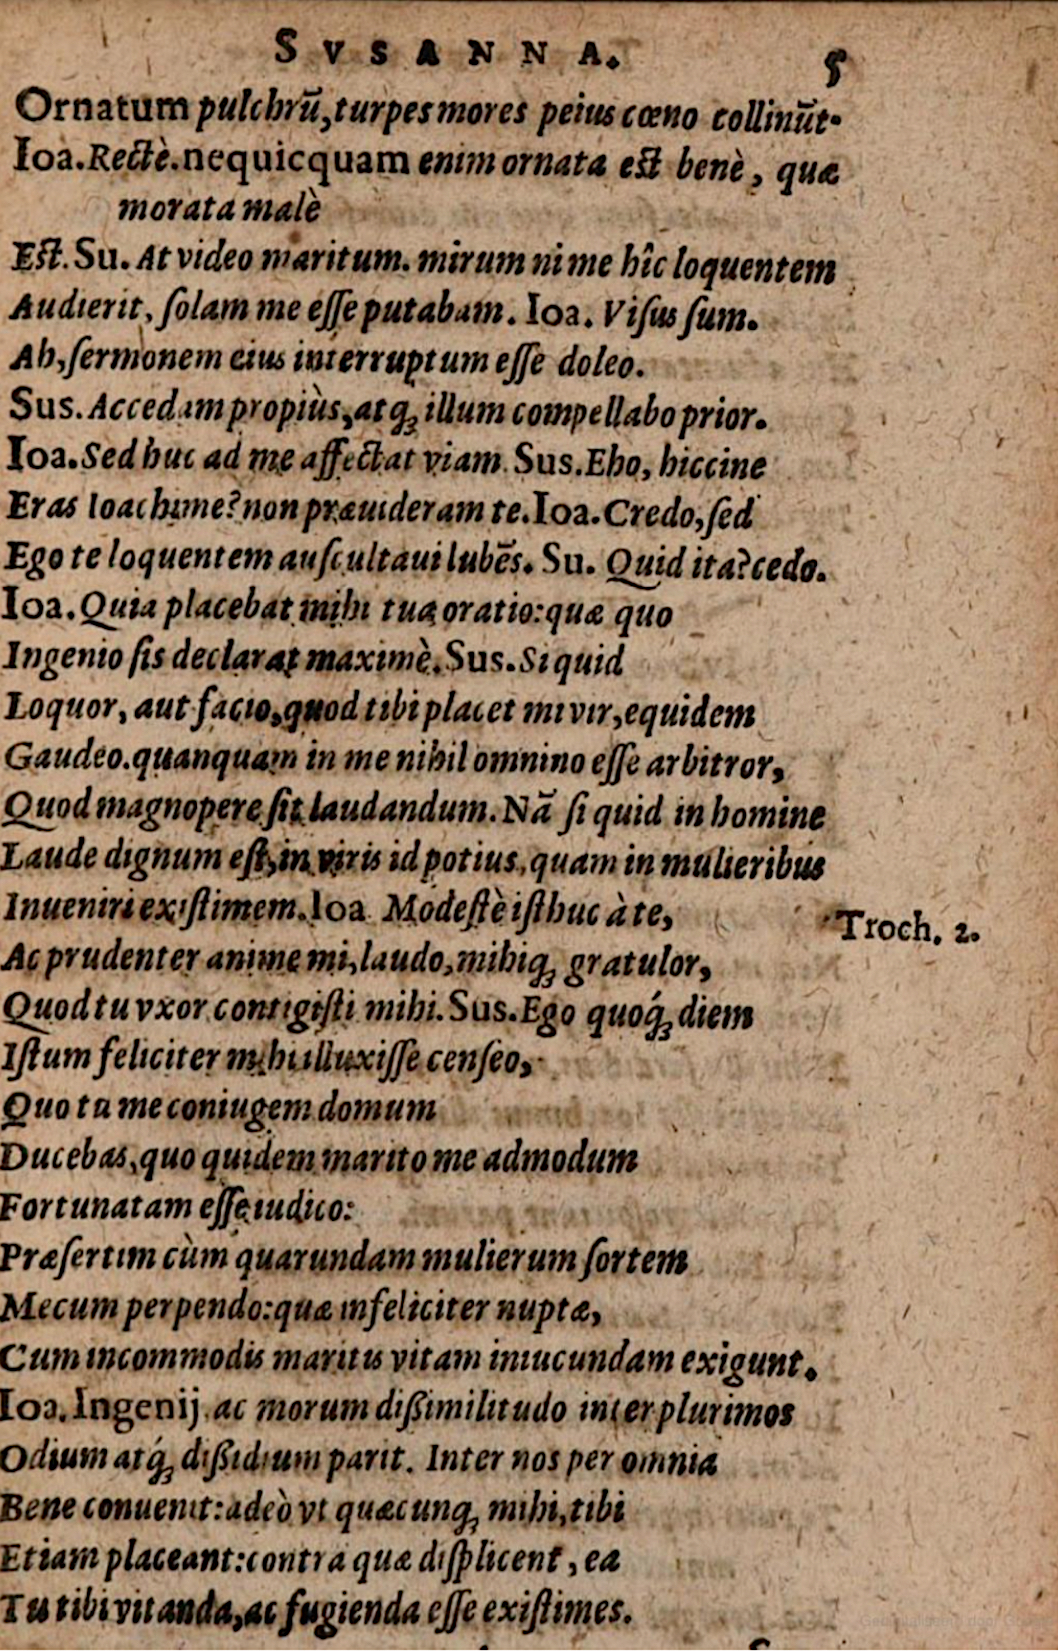 SVSANNA. 5
Ornatum pulchrū, turpes mores peius cœno collinūt.
Ioa. Rectè. nequicquam enim ornata est benè, quæ
morata malè
Est. Su. At video maritum. mirum ni me hîc loquentem
Audierit, ſolam me eſſe putabam. Ioa. Viſus ſum.
Ah, ſermonem eius interruptum eſſe doleo.
Sus. Accedam propiùs, atq; illum compellabo prior.
Ioa. Sed huc ad me affectat viam. Sus. Eho, hiccine
Eras Ioachime? non præuideram te. Ioa. Credo, ſed
Ego te loquentem auſcultaui lubēs. Su. Quid ita? cedo.
Ioa. Quia placebat mihi tua oratio: quæ quo
Ingenio ſis declarat maximè. Sus. Si quid
Loquor, aut facio, quod tibi placet mi vir, equidem
Gaudeo. quanquam in me nihil omnino eſſe arbitror,
Quod magnopere ſit laudandum. Nā ſi quid in homine
Laude dignum eſt, in viris id potius, quam in mulieribus
Inueniri exiſtimem. Ioa Modeſtè iſthuc à te,
Troch. 2.
Ac prudenter anime mi, laudo, mihiq; gratulor,
Quod tu vxor contigiſti mihi. Sus. Ego quoq́; diem
Iſtum feliciter mihi illuxiſſe cenſeo,
Quo tu me coniugem domum
Ducebas, quo quidem marito me admodum
Fortunatam eſſe iudico:
Præſertim cùm quarundam mulierum ſortem
Mecum perpendo: quæ infeliciter nuptæ,
Cum incommodis maritis vitam iniucundam exigunt.
Ioa. Ingenij ac morum dißimilitudo inter plurimos
Odium atq́; dißidium parit. Inter nos per omnia
Bene conuenit: adeò vt quæcunq; mihi, tibi
Etiam placeant: contra quæ diſplicent, ea
Tu tibi vitanda, ac fugienda eſſe exiſtimes.